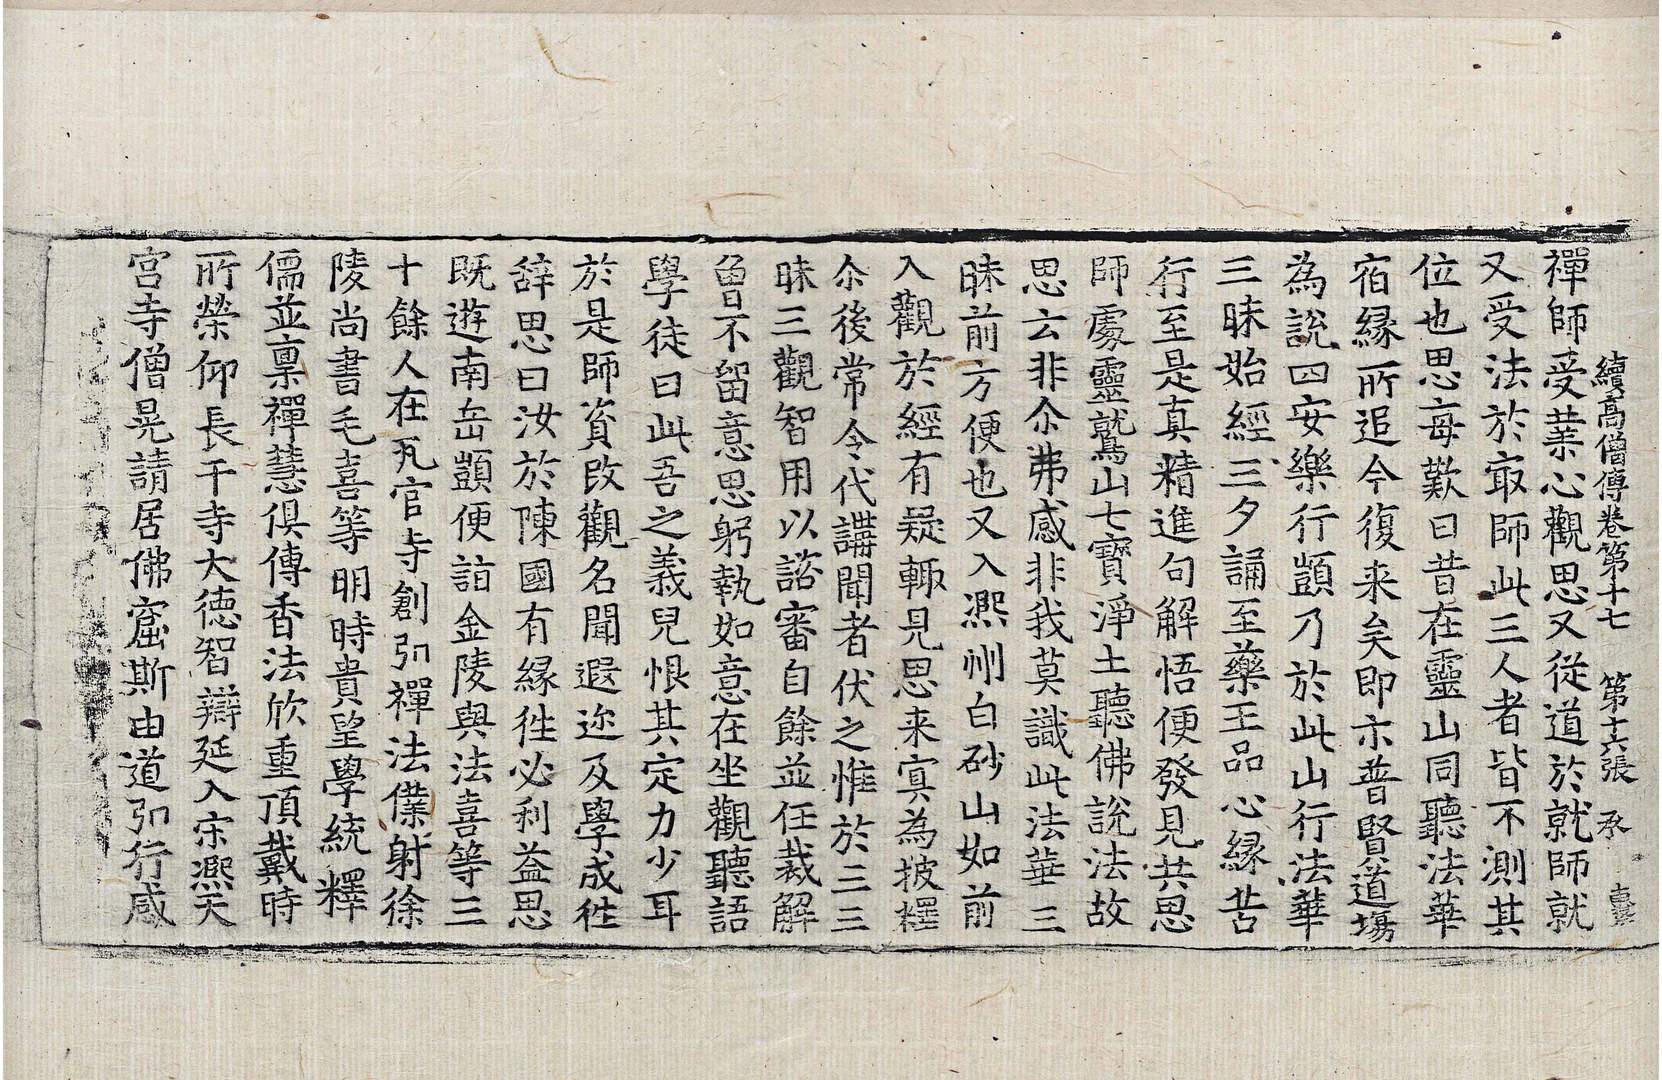 續高僧傳卷第十七 第十六張 承
禪師受業心觀思又從道於就師就
又受法於冣師此三人者皆不測其
位也思每歎曰昔在靈山同聽法華
宿縁所追今復来矣即示普賢道場
為說四安樂行顗乃於此山行法華
三昧始經三夕誦至藥王品心縁苦
行至是真精進句解悟便發見共思
師處靈鷲山七寶淨土聽佛說法故
思云非尒弗感非我莫識此法華三
昧前方便也又入凞州白砂山如前
入觀於經有疑輙見思来寘為披釋
尒後常令代講聞者伏之惟於三三
昧三觀智用以諮審自餘並任裁解
曾不留意思躬執如意在坐觀聽語
學徒曰此吾之義兒恨其定力少耳
於是師資改觀名聞遐迩及學成徃
辞思曰汝於陳國有縁徃必利益思
既遊南岳顗便詣金陵與法喜等三
十餘人在瓦官寺創弘禪法僕射徐
陵尚書毛喜等明時貴望學統釋
儒並稟禪慧俱傳香法欣重頂戴時
所榮仰長干寺大德智辯延入宋凞天
宫寺僧晃請居佛窟斯由道弘行感